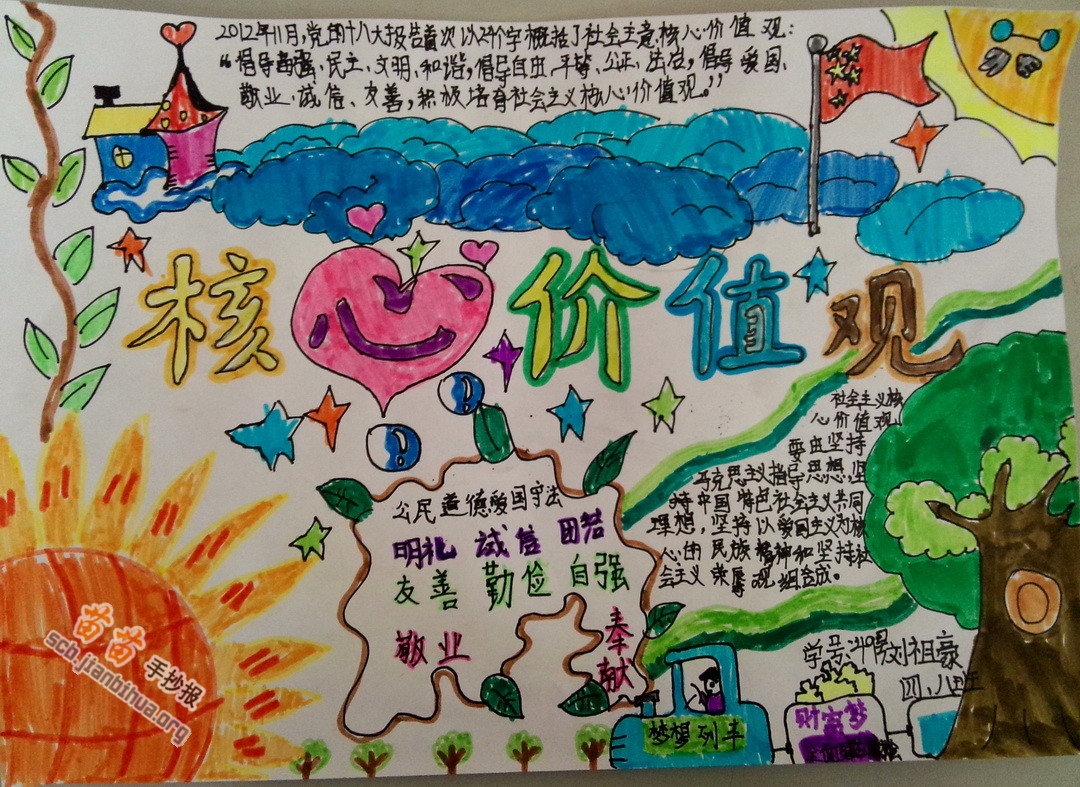 2012年11月,党的十八大报告首次以24个字概括了社会主义核心价值观:
“倡导富强、民主、文明、和谐,倡导自由、平等、公正、法治,倡导爱国、
敬业、诚信、友善,积极培育社会主义核心价值观。”
核心价值观
社会主义核
心价值观
要由坚持
马克思主义指导思想,坚
持中国特色社会主义共同
理想,坚持以爱国主义为核
心的民族精神和坚持社
会主义荣辱观组合成。
公民道德爱国守法
明礼 诚信 团结
友善 勤俭 自强
敬业 奉献
苗苗手抄报
scb.jianbihua.org
刘祖豪
四、八班
梦想列车
财富梦